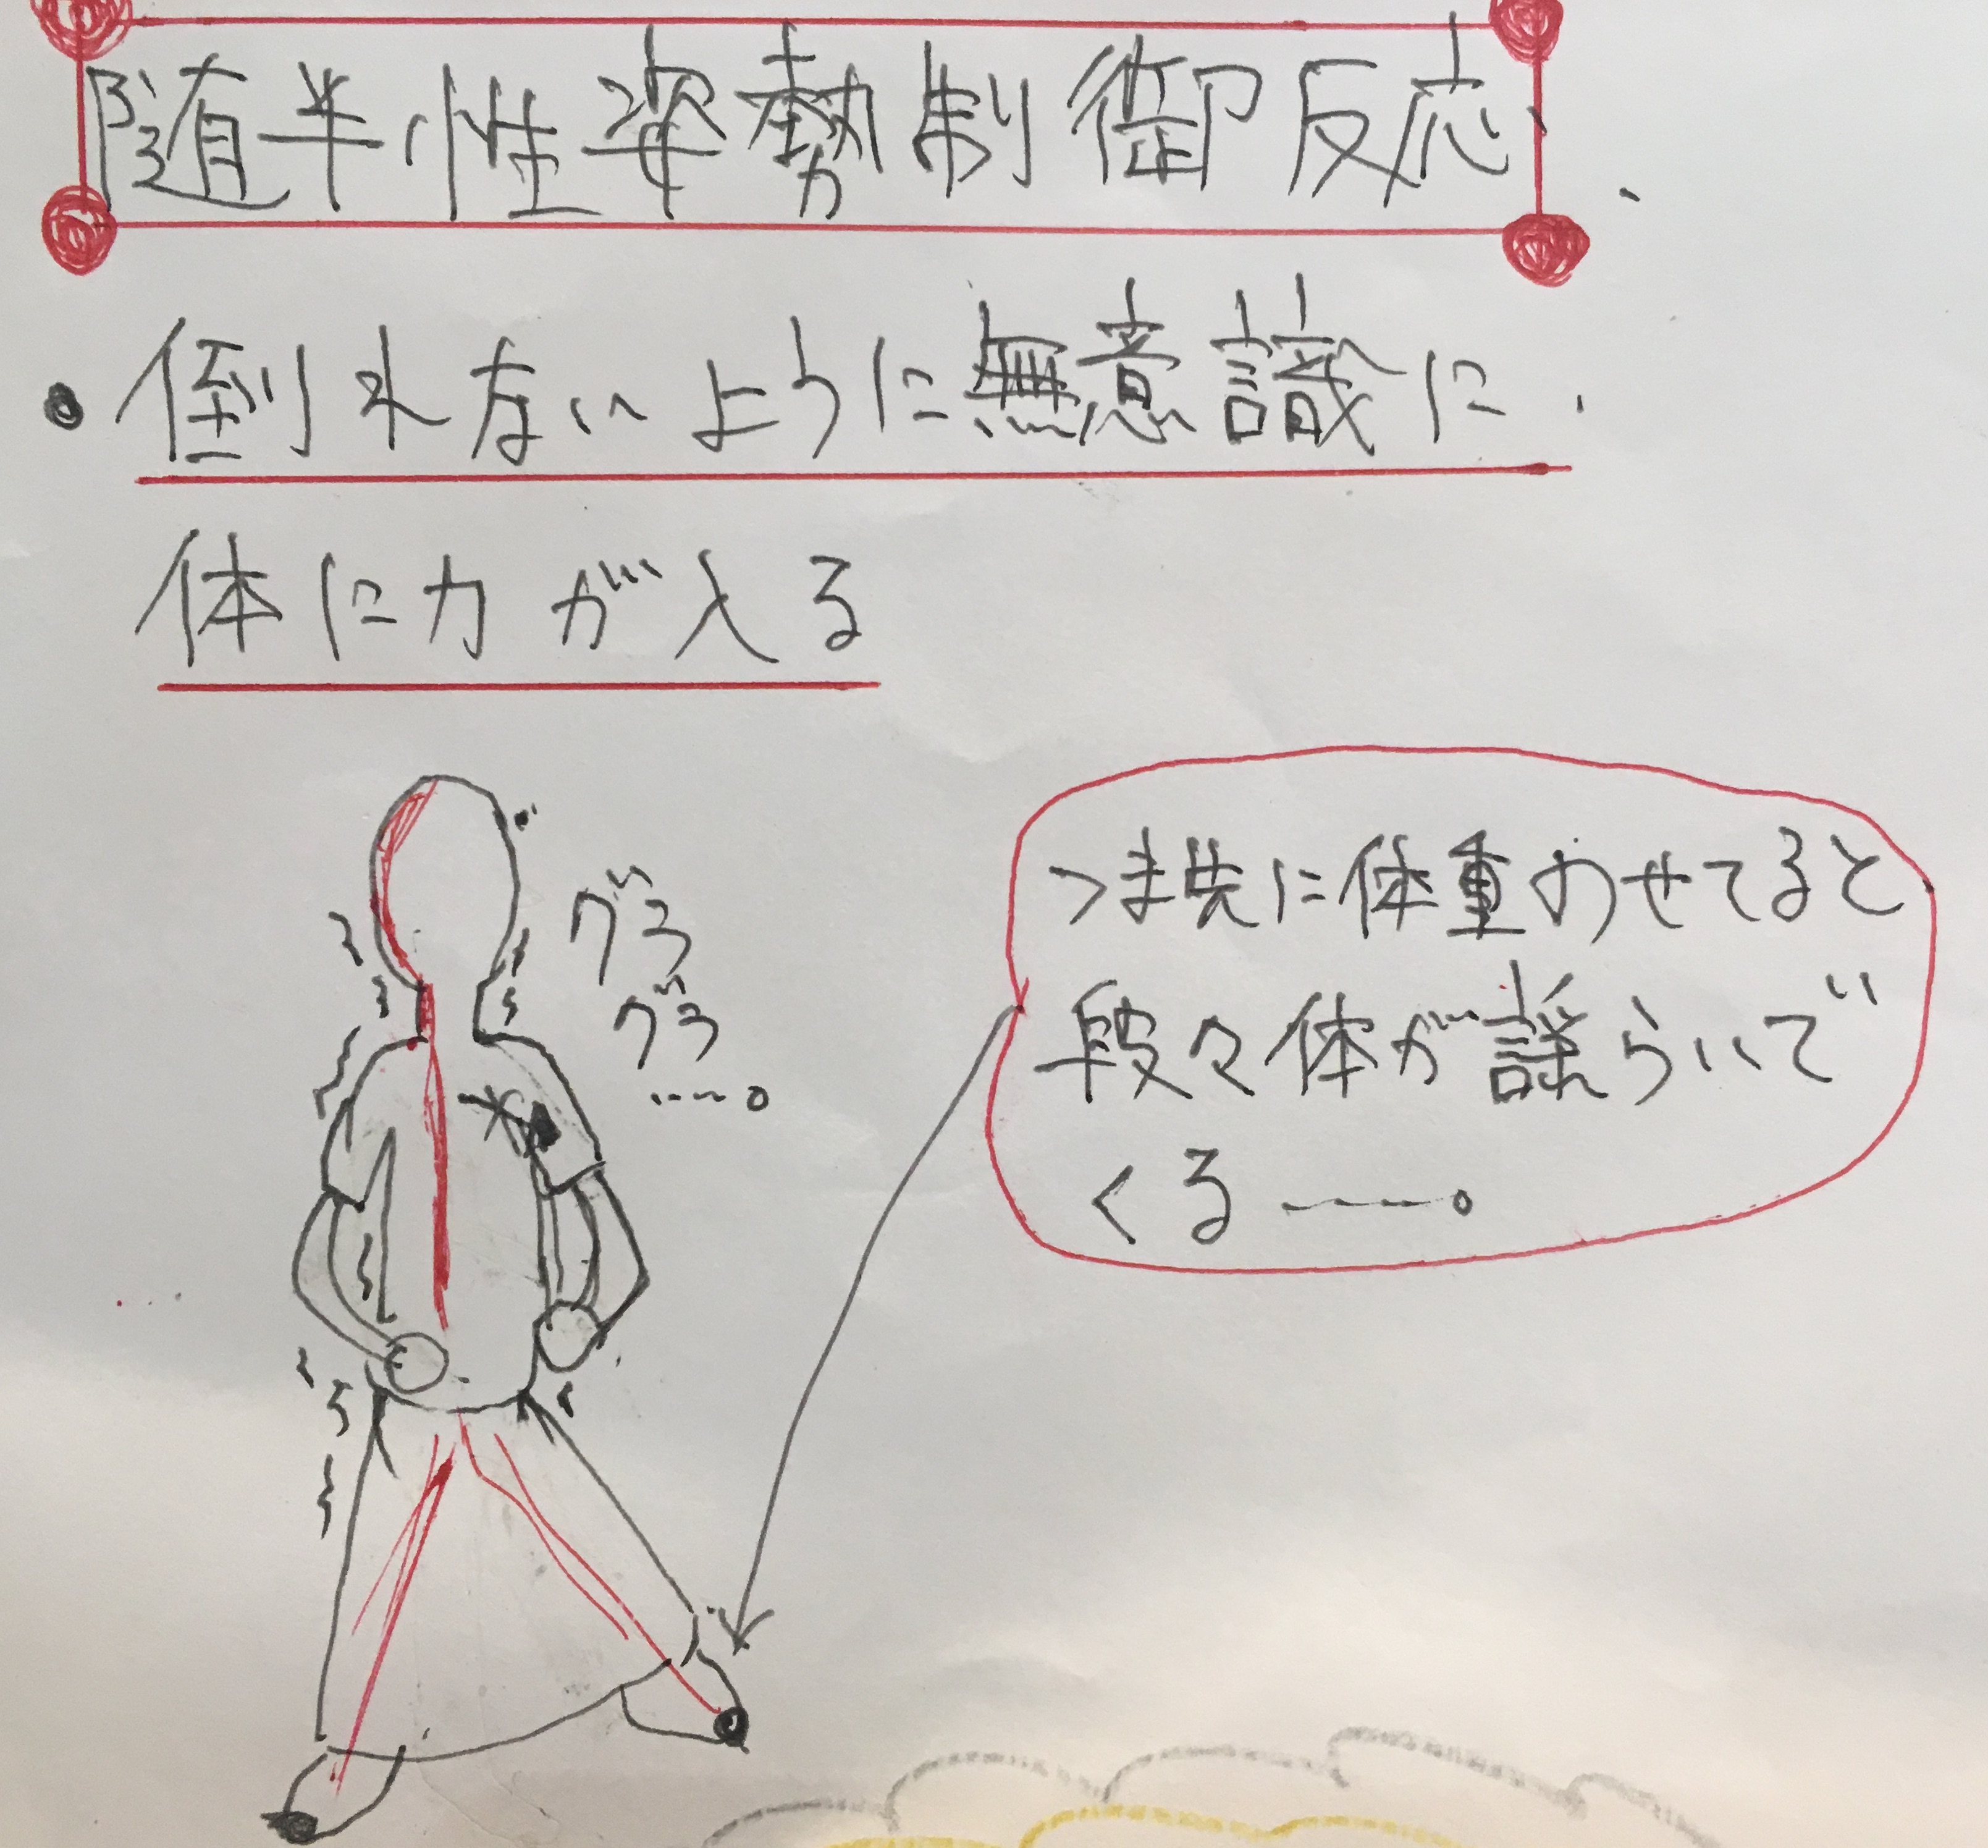 随半性姿勢制御反応
・倒れないように無意識に
体に力が入る
グラ
グラ
……。
つま先に体重のせてると
段々体が謡らいで
くる……。